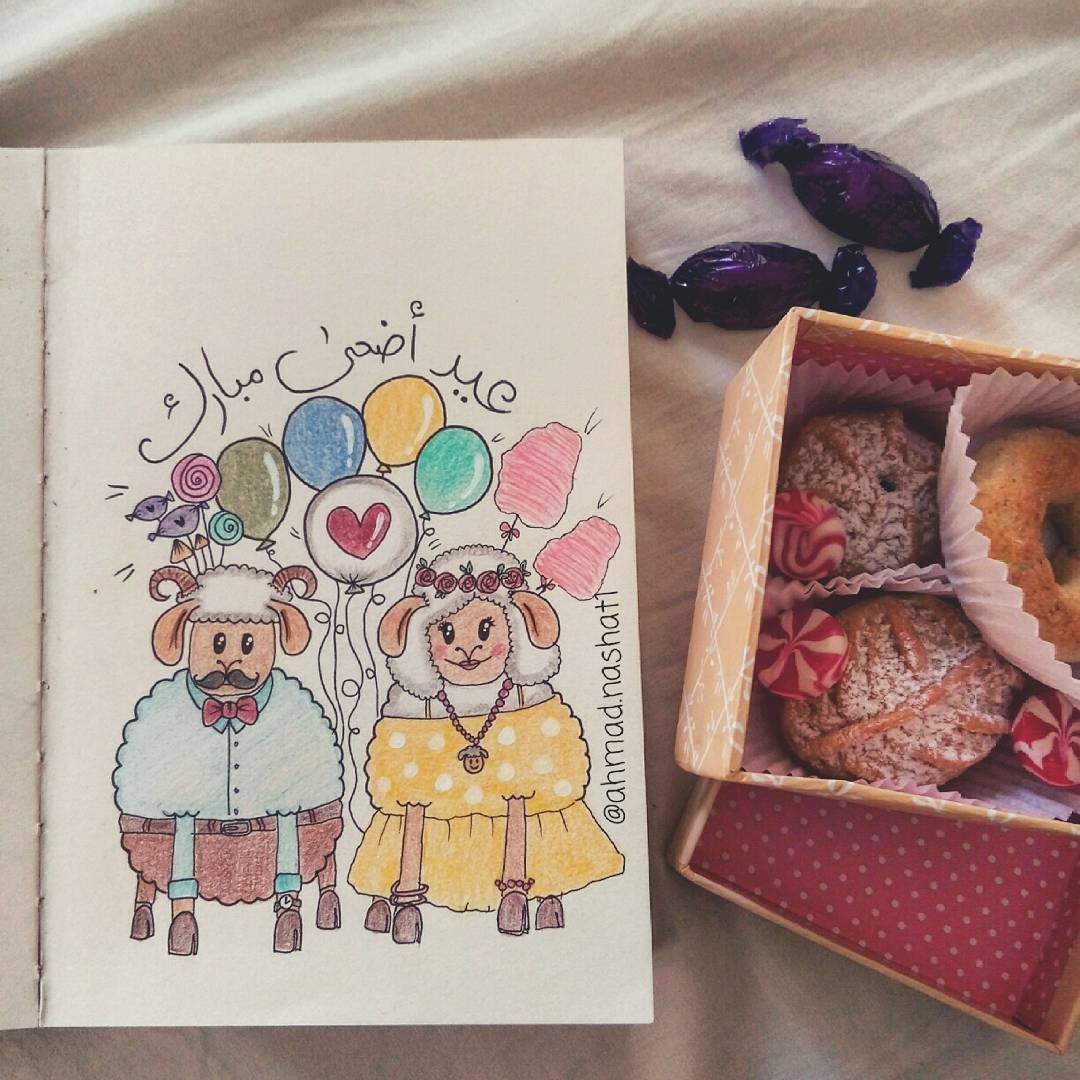 عيد أضحىٰ مبارك
@ahmad.nashati